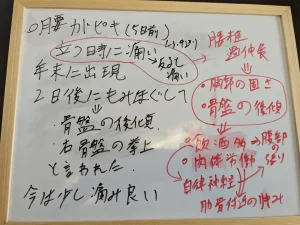 ○月要がピキ(5日前)
立つ時に痛い
→反ると
痛い
年末に出現
2日後にもみほぐして
・骨盤の後傾
・右骨盤の挙上
と言われた。
今は少し痛み良い
腰椎
過伸展
・胸部の固さ
・骨盤の後傾
・飲酒多→腹部
の張り
・肉体労働
自律神経
肋骨付近の痛み